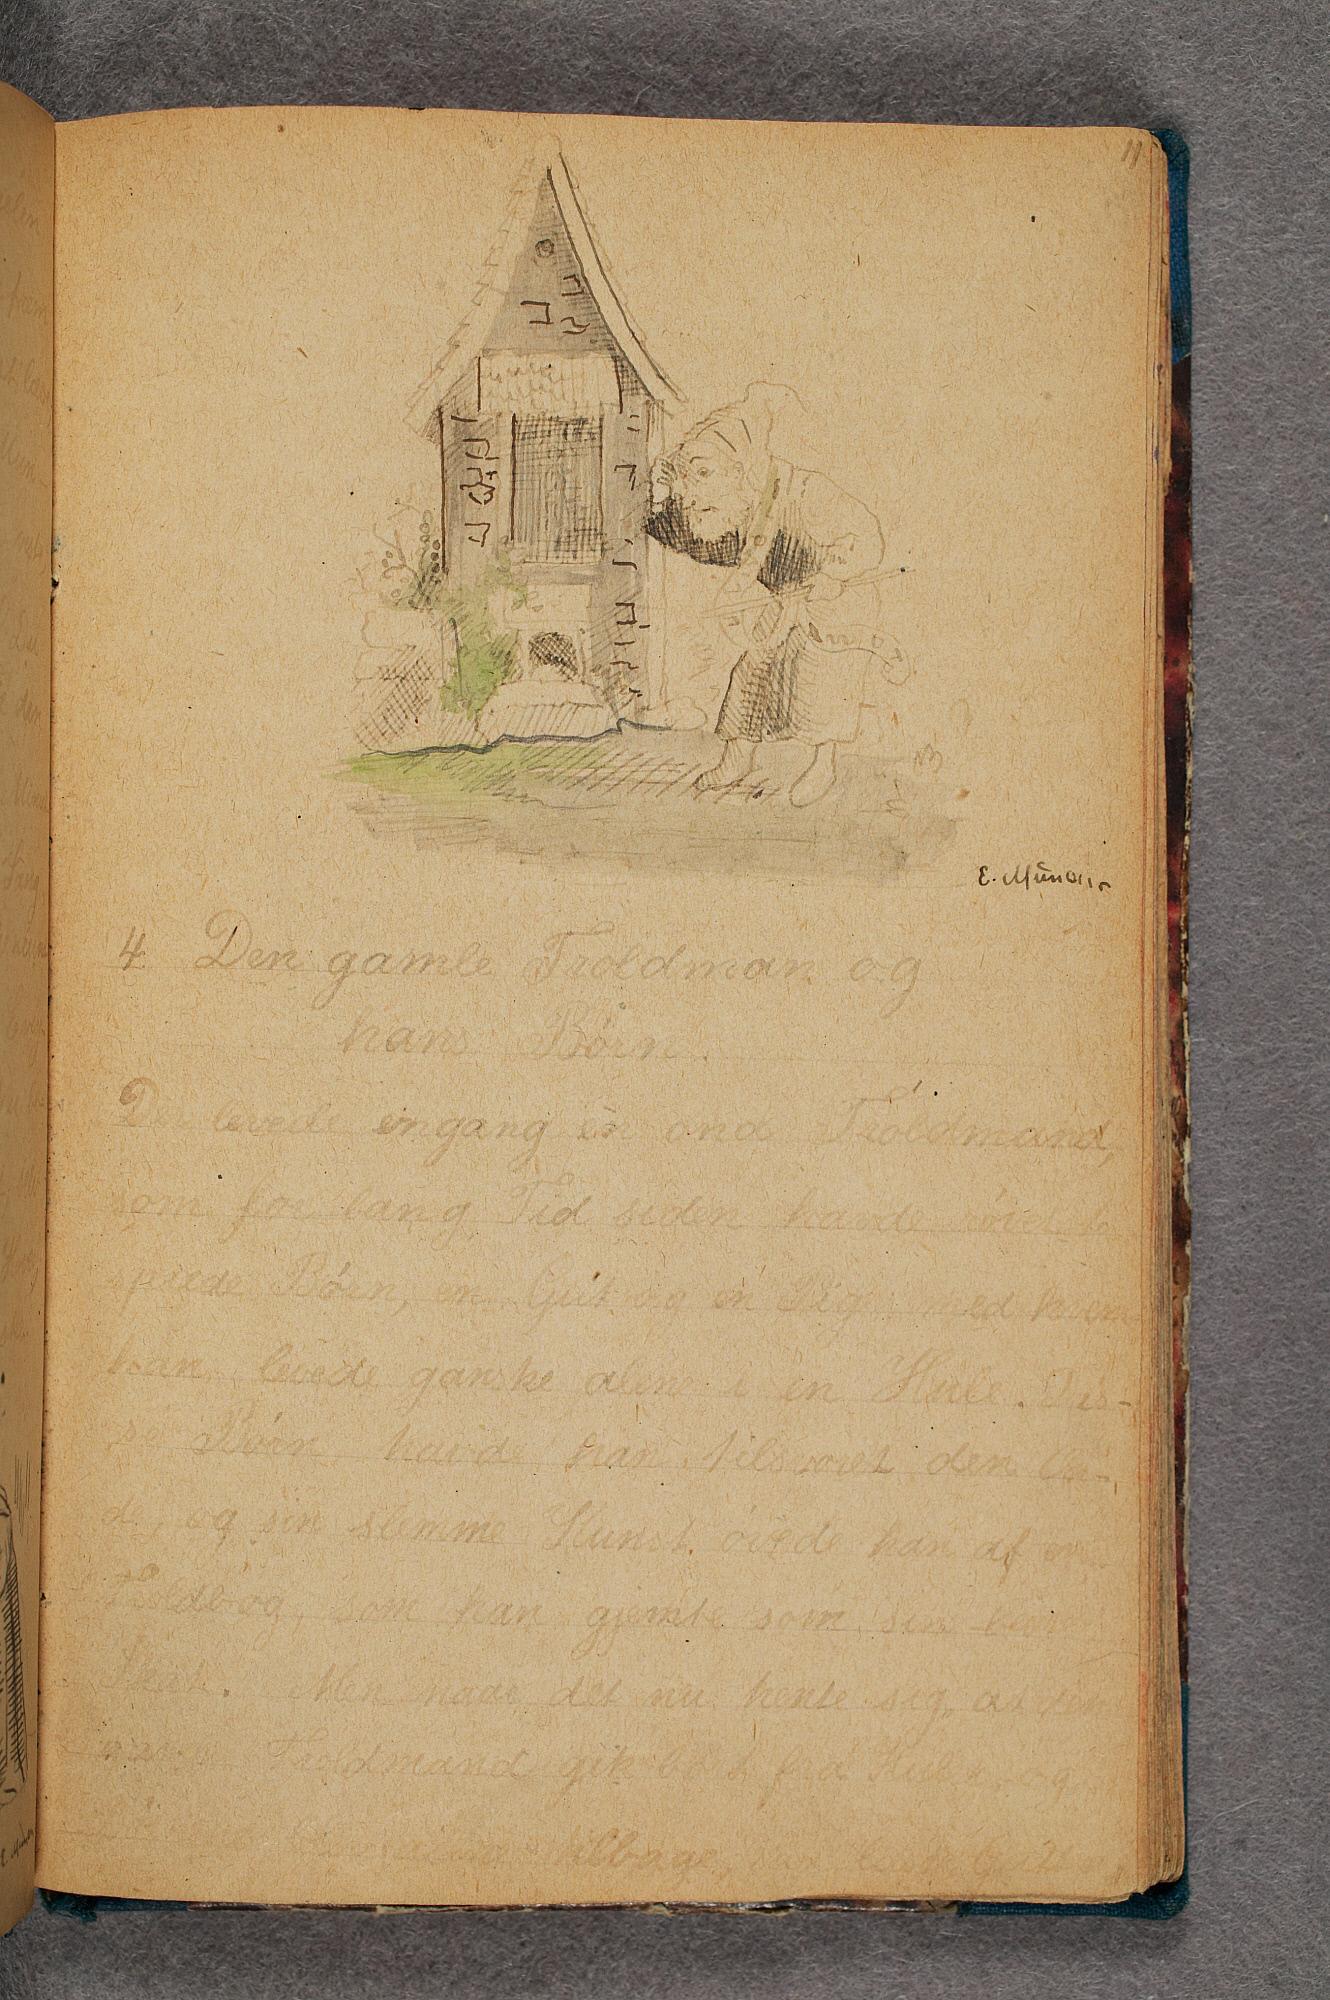 11
E. Münch
4 Den gamle Troldman og
hans Børn.
Der levede engang en ond Troldmand,
som for lang Tid siden havde røvet to
spæde Børn, en Gut og en Pige, med hvem
han levede ganske alene i en Hule. Dis-
se Børn havde han tilsvoret den On-
de, og sin slemme Kunst øvede han af en
Troldbog, som han gjemte som sin
Skat. Men naar det nu hente sig, at den
Troldmand gik bort fra Hulen, og
tilbage,